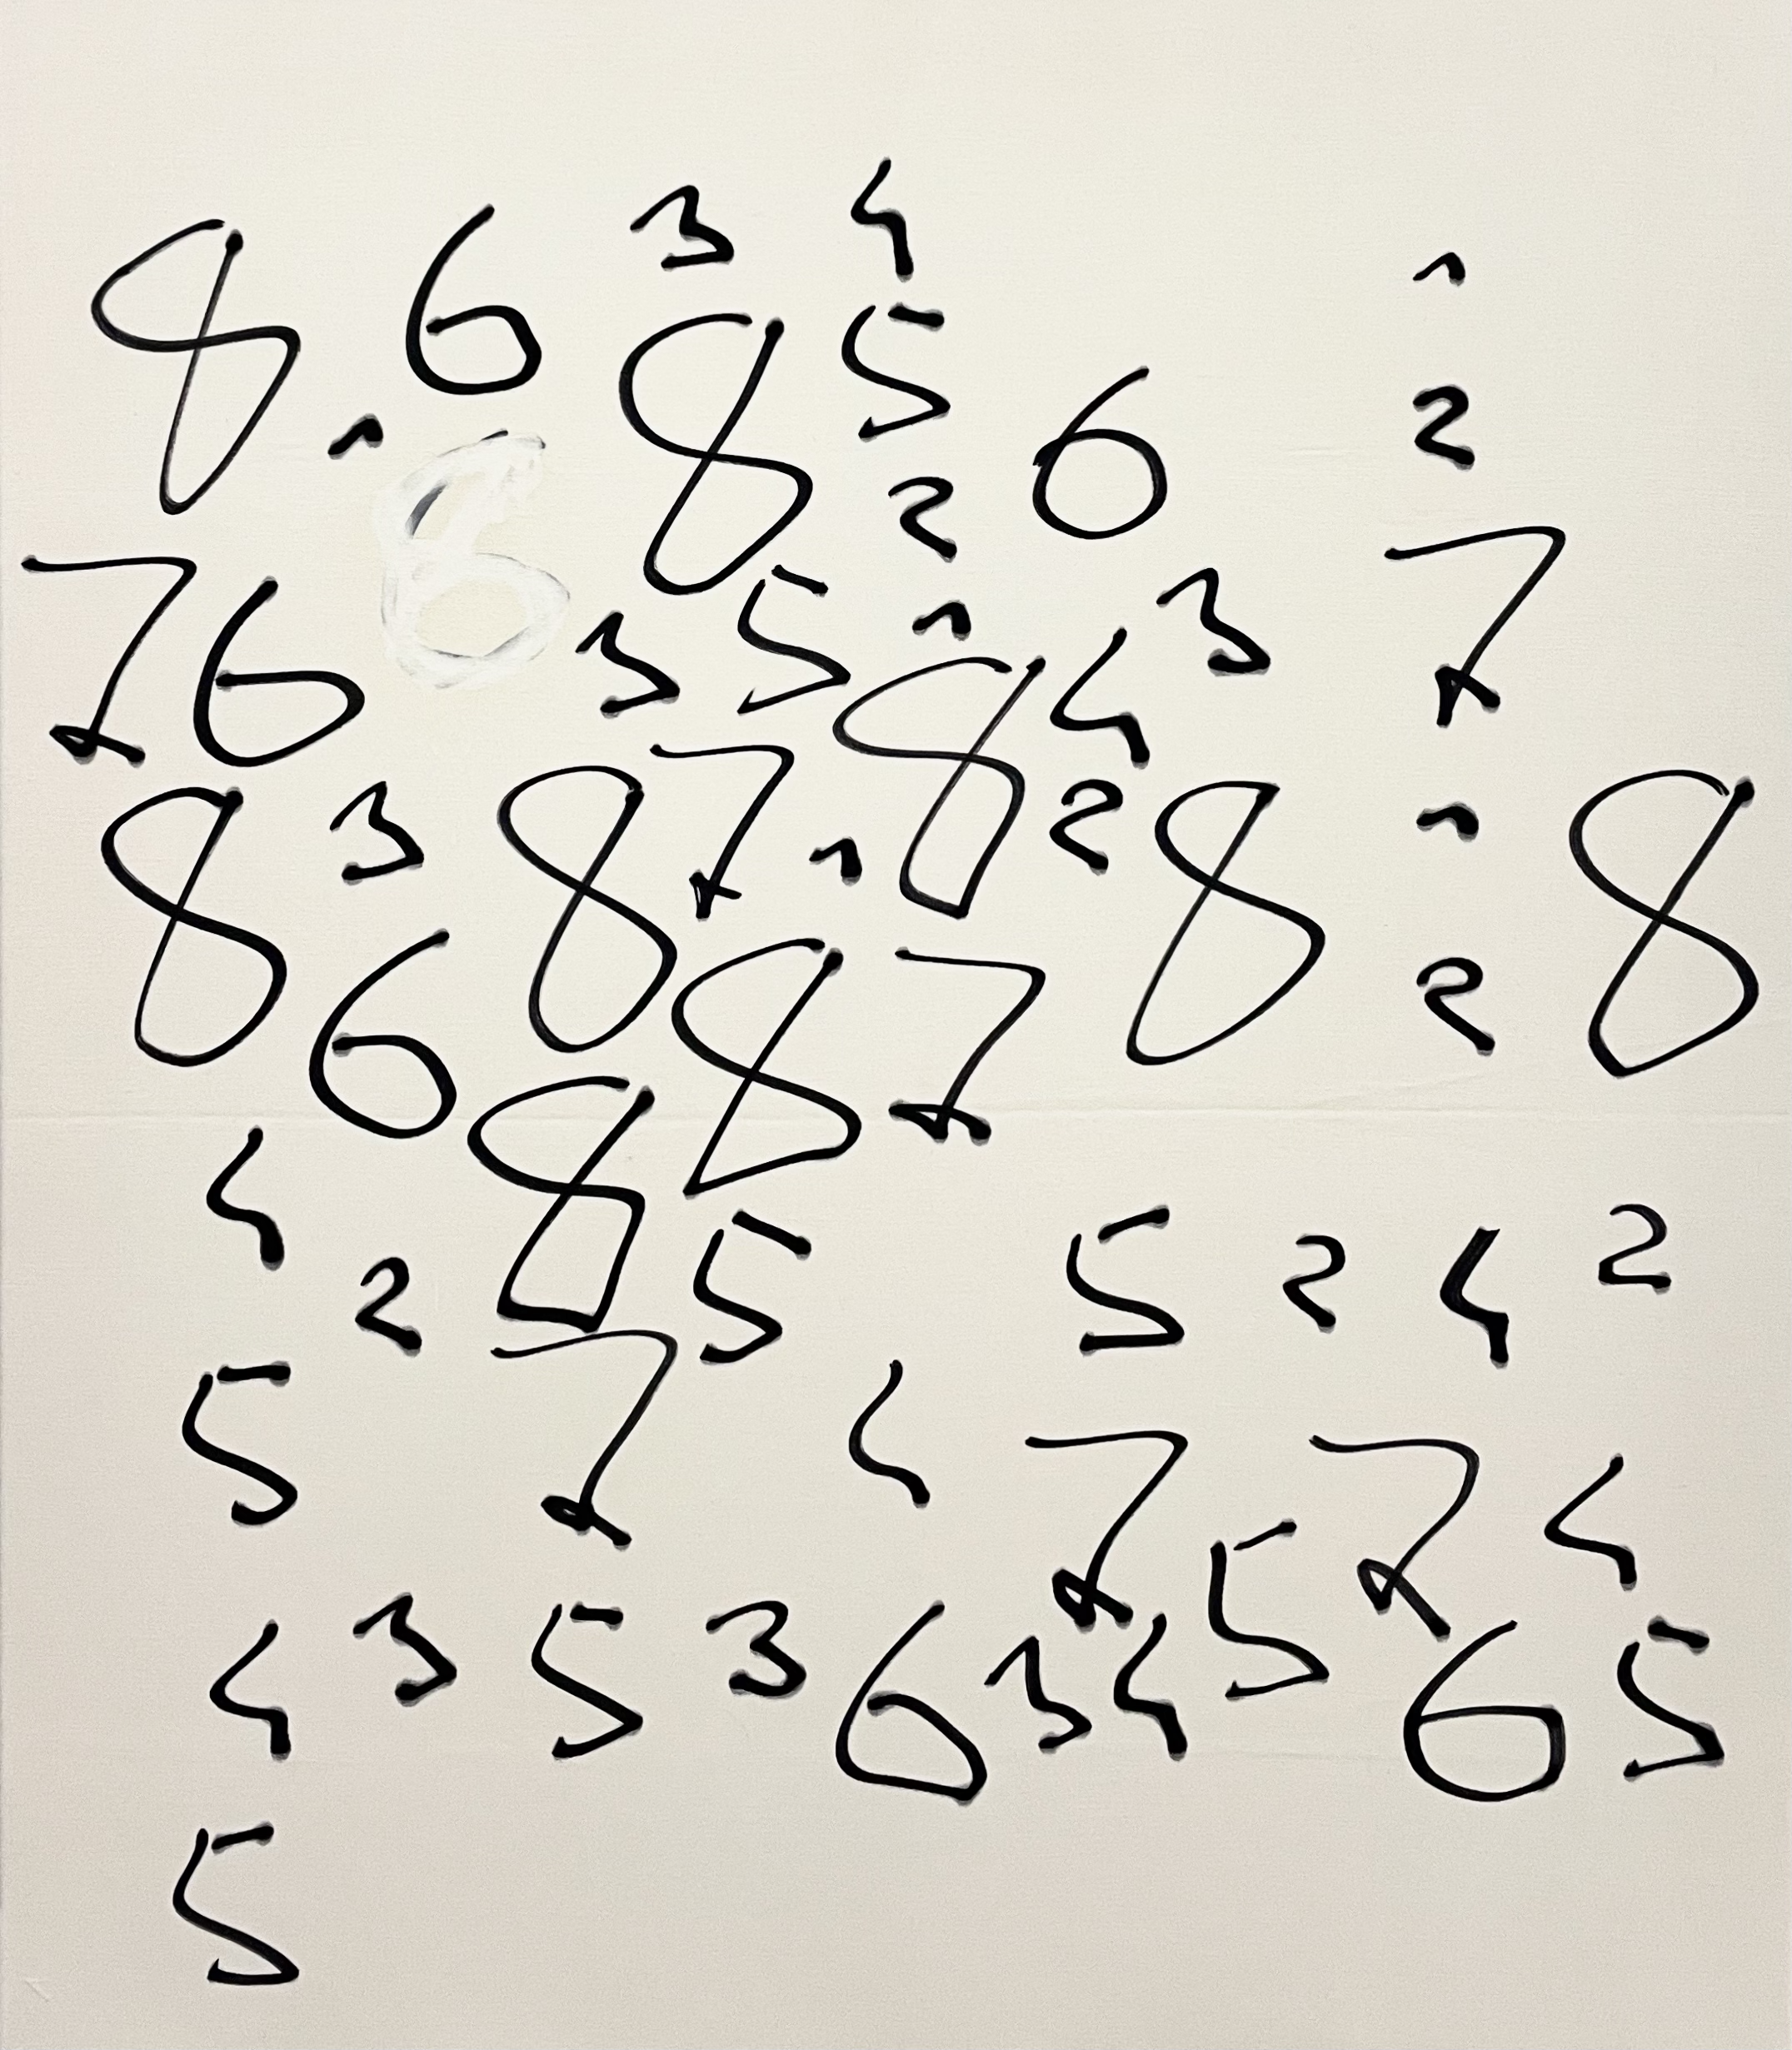 8 6 3 4 1
1 8 5 6 2
7 6 3 5 2 1 4 3 7
8 3 8 7 1 8 2 8 1 8
6 8 8 7 2
4 2 5 5 2 4 2
5 7 4 7 7 4
4 3 5 3 6 3 4 5 6 5
5